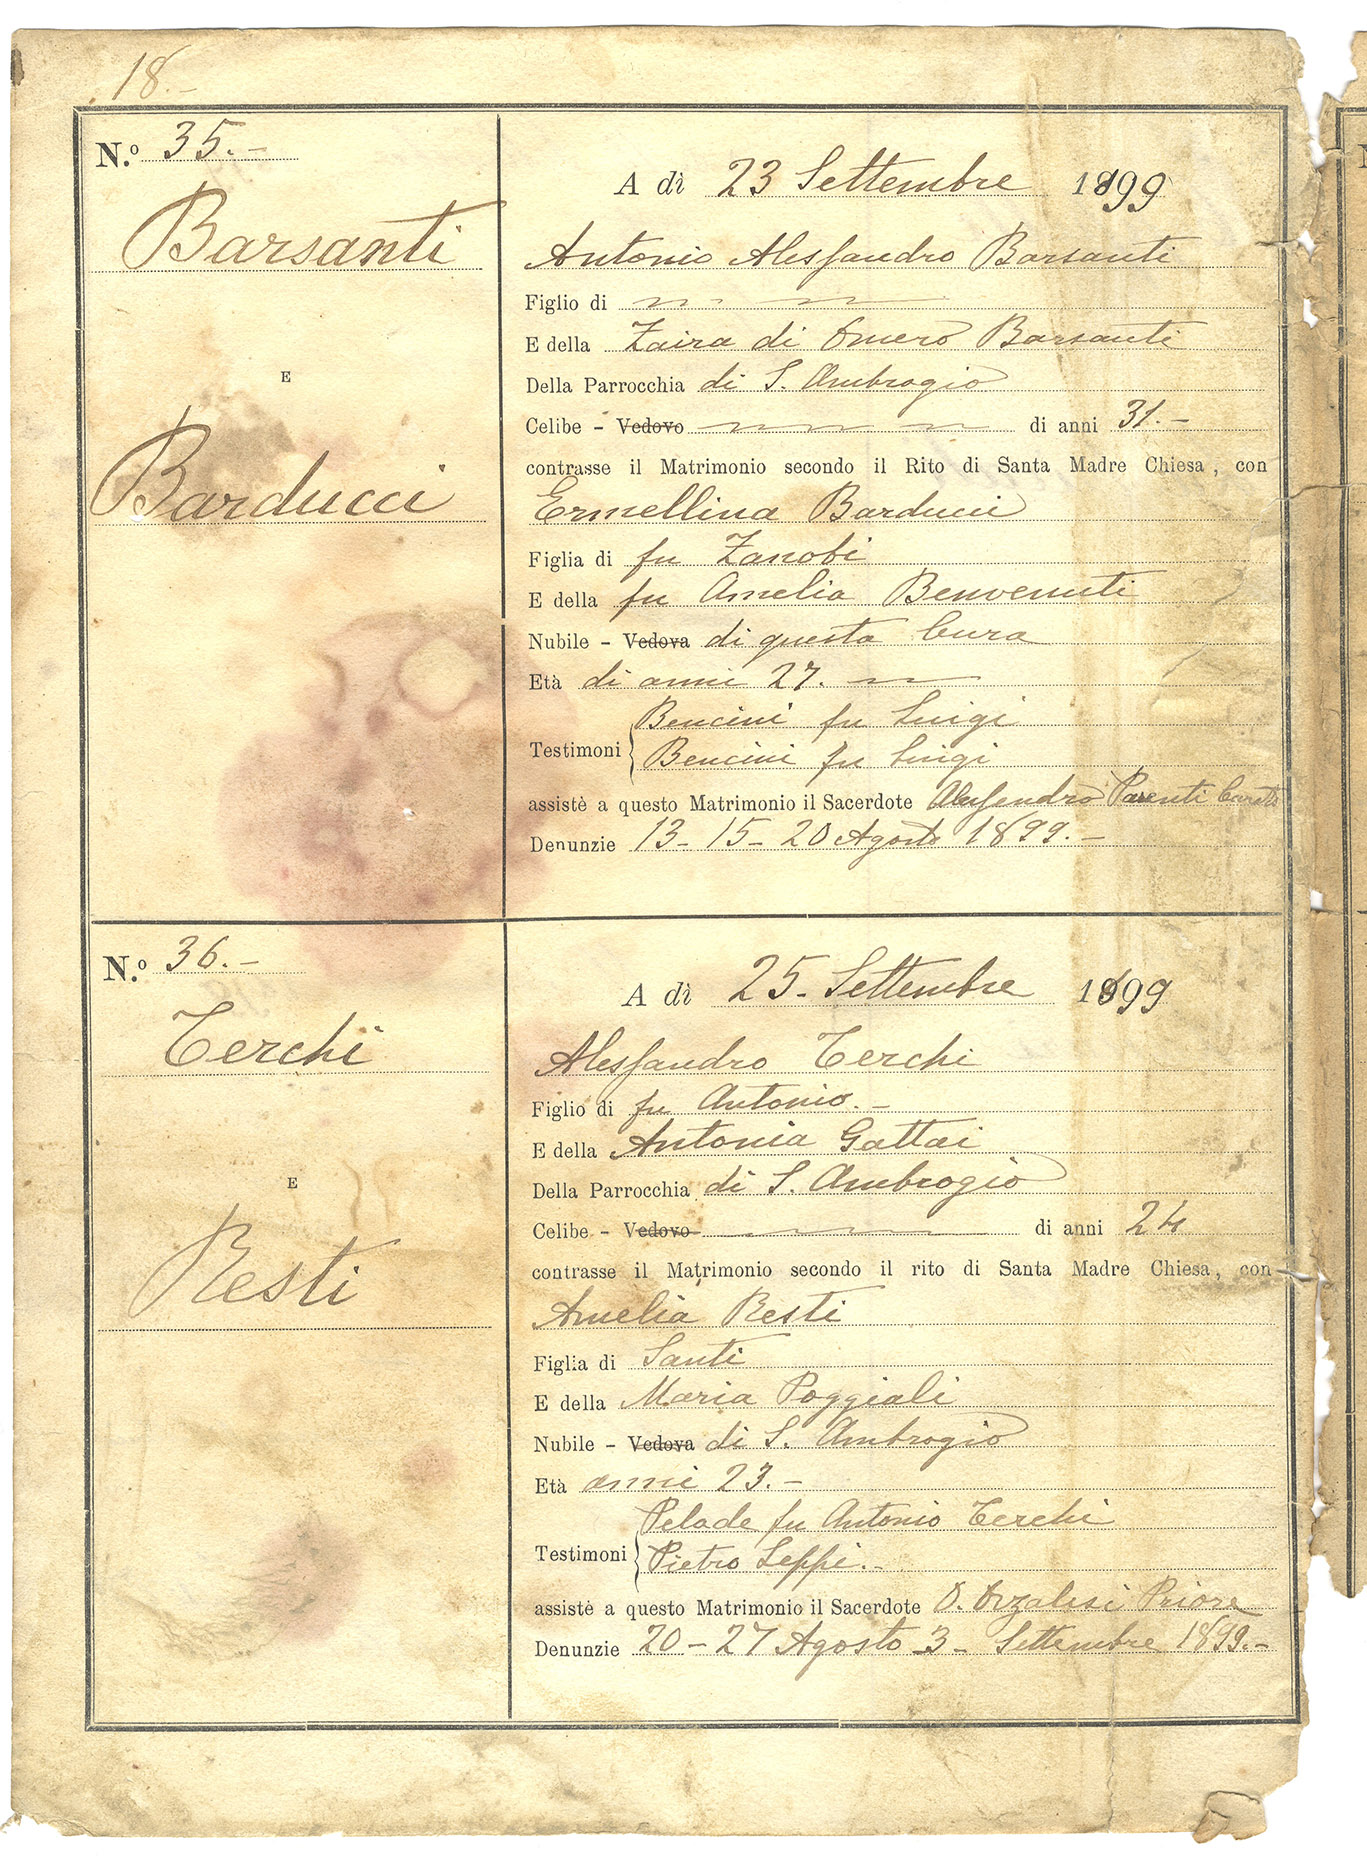 18.-
N.º 35.-
Barsanti
E
Barducci
A dì 23 Settembre 1899
Antonio Alessandro Barsanti
Figlio di
E della Zaira di Omero Barsanti
Della Parrocchia di S. Ambrogio
Celibe - Vedovo di anni 31.-
contrasse il Matrimonio secondo il Rito di Santa Madre Chiesa, con
Ermellina Barducci
Figlia di fu Zanobi
E della fu Amelia Benvenuti
Nubile - Vedova di questa Cura
Età di anni 27.
Bencini fu Luigi
Testimoni
Bencini fu Luigi
assistè a questo Matrimonio il Sacerdote Alessandro Parenti Curato
Denunzie 13- 15- 20 Agosto 1899.-
N.º 36.-
Terchi
E
Resti
A dì 25. Settembre 1899
Alessandro Terchi
Figlio di fu Antonio.-
E della Antonia Gattai
Della Parrocchia di S. Ambrogio
Celibe - Vedovo di anni 24
contrasse il Matrimonio secondo il rito di Santa Madre Chiesa, con
Amelia Resti
Figlia di Santi
E della Maria Poggiali
Nubile - Vedova di S. Ambrogio
Età anni 23.-
Pelade fu Antonio Terchi
Testimoni
Pietro Seppi.-
assistè a questo Matrimonio il Sacerdote O. Orzalesi Priore
Denunzie 20 - 27 Agosto 3- Settembre 1899.-